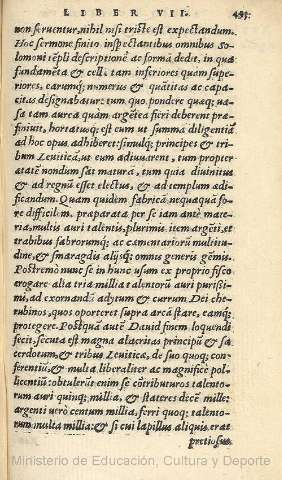 LIBER VII. 493
non seruentur, nihil nisi triste est expectandum.
Hoc sermone finito inspectantibus omnibus So-
lomoni tẽpli descriptionẽ ac formã dedit, in qua
fundamẽta & cellæ tam inferiores quàm supe-
riores, earumq; numerus & quãtitas ac capa-
citas designabatur: tum quo pondere quæq; ua-
sa tam aurea quàm argẽtea fieri deberent præ
finiuit, hortatusq; est eum ut summã diligentiã
ad hoc opus adhiberet: simulq; principes & tri-
bum Leuiticã, ut eum adiuuarent, tum propter
ætatẽ nondum sat maturã, tum quia diuinitus
& ad regnũ esset electus, & ad templum ædi-
ficandum. Quam quidem fabricã nequaquã fo-
re difficilem. præparata per se iam ante mate-
ria, multis auri talentis, plurimis item argẽti, et
trabibus fabrorumq; ac cæmentariorũ multitu-
dine, & smaragdis alijsq; omnis generis gẽmis.
Postremò nunc se in hunc usum ex proprio fisco
erogare alia tria millia talentorũ auri purissi-
mi, ad exornandũ adytum & currum Dei che-
rubinos, quos oporteret supra arcã stare, eamq;
protegere. Postquã autẽ Dauid finem loquendi
fecit, secuta est magna alacritas principũ & sa
cerdotum, & tribus Leuiticæ, de suo quoq; con-
ferentiũ, & multa liberaliter ac magnificè pol-
licentiũ: obtulerũt enim se cõtributuros talento-
rum auri quinq; millia, & stateres decẽ mille:
argenti verò centum millia, ferri quoq; talento-
rum multa millia: & si cui lapillus aliquis erat
pretiosus
Ministerio de Educación, Cultura y Deporte